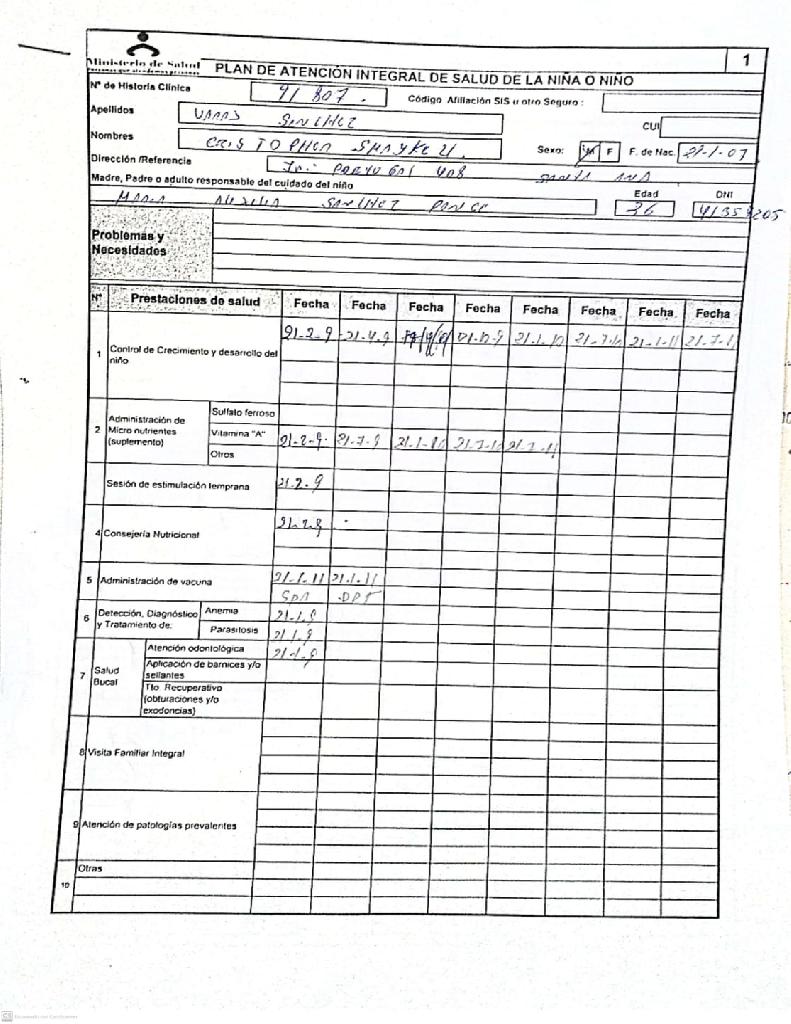 1
Ministerio de Salud
PLAN DE ATENCIÓN INTEGRAL DE SALUD DE LA NIÑA O NIÑO
N° de Historia Clínica 91 807 . Código Afiliación SIS u otro Seguro :
Apellidos SANCHEZ CUI
Nombres CRIS TO PHER Sexo: M F F. de Nac. 21-1-07
Dirección /Referencia SANTA ANA
Madre, Padre o adulto responsable del cuidado del niño Edad DNI
MARIA SANCHEZ 36
Problemas y
Necesidades
N° Prestaciones de salud Fecha Fecha Fecha Fecha Fecha Fecha Fecha Fecha
1 Control de Crecimiento y desarrollo del niño 21-2-9 21-4-9 21-10-9 21-1-10 21-7-10 21-1-11 21-7-11
2 Administración de Micro nutrientes (suplemento)
Sulfato ferroso
Vitamina "A" 21-2-9. 21-7-9 21-1-10 21-7-10 21-7-11
Otros
Sesión de estimulación temprana 21-2-9
4 Consejería Nutricional 21-2-9
5 Administración de vacuna 21-1-11 21-1-11
DPT
6 Detección, Diagnóstico y Tratamiento de:
Anemia 21-1-9
Parasitosis 21-1-9
7 Salud Bucal
Atención odontológica 21-1-9
Aplicación de barnices y/o sellantes
Tto. Recuperativo (obturaciones y/o exodoncias)
8 Visita Familiar Integral
9 Atención de patologías prevalentes
10 Otras
CS